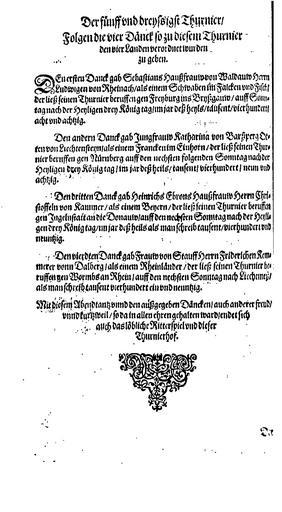 Der fünff und dreyssigst Thurnier/
Folgen die vier Dänck so zu diesem Thurnier
den vier Landen verordnet wurden
zu geben.
DEn ersten Danck gab Sebastians Haußfrauw von Waldauw Herr
Ludwigen von Rheinach/als einem Schwaben im Falcken und Fisch/
der ließ seinen Thurnier beruffen gen Freyburg ins Bryßgauw/ auff Sonn-
tag nach der Heyligen drey König tag/im jar deß heyls/tausent/vierhundert
acht und achtzig.
Den andern Danck gab Jungfrauw Katharina von
von Liechtensteyn/als einem Francken im Einhorn/ der ließ seinen Thur-
nier beruffen gen Nürnberg auff den nechsten folgenden Sonntag nach der
Heyligen drey König tag/im jar deß heils/ tausent/ vierhundert/ neun und
achtzig.
Den dritten Danck gab Heinrichs Ebrons Haußfrauw Herrn Chri-
stoffeln von Kammer/als einem Beyern/der ließ seinen Thurnier beruffen
gen Ingelstatt an die Donauw/auff den nechsten Sonntag nach der Heyli-
gen drey König tag/im jar deß heils als man schreib tausent/vierhundert und
neuntzig.
Den vierdten Danck gab Frauw von Stauff Herrn Friderichen Kem-
merer von Dalberg/als einem Rheinländer/ der ließ seinen Thurnier be-
ruffen gen Wormbs am Rhein/ auff den nechsten Sonntag nach Liechtmeß/
als man schreib tausent vierhundert ein und neuntzig.
Mit diesem Abendtantz unnd den außgegeben Däncken/auch anderer freud/
unnd kurtzweil/so da in allen ehren gehalten ward/endet sich
auch das löbliche Ritterspiel und dieser
Thurnierhof.